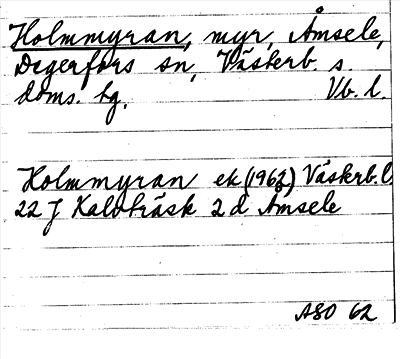 Holmmyran, myr, Åmsele,
Degerfors sn, Västerb. s.
doms. hg. Vb. l.
Holmmyran ek (1963) Västerb. l
22 J Kalvträsk 2 d Åmsele
ASO 62